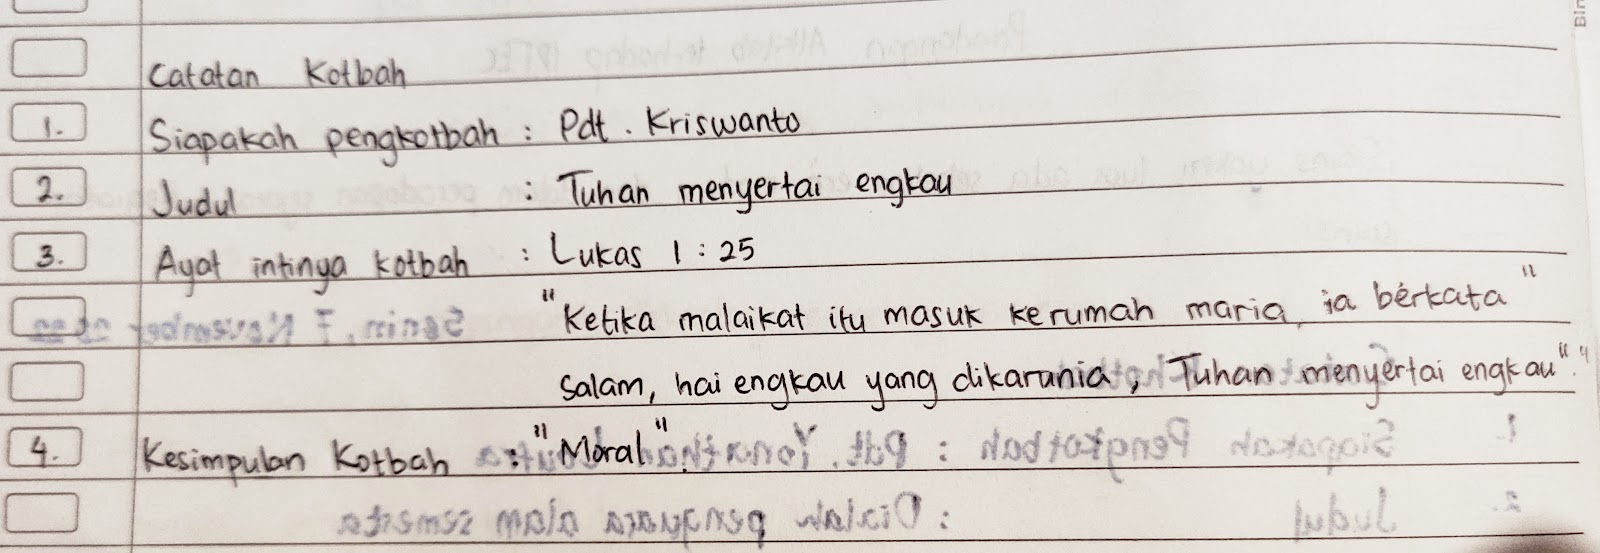 Catatan Kotbah
1. Siapakah pengkotbah : Pdt. Kriswanto
2. Judul : Tuhan menyertai engkau
3. Ayat intinya kotbah : Lukas 1 : 25
"Ketika malaikat itu masuk kerumah maria, ia berkata "
salam, hai engkau yang dikarunia, Tuhan menyertai engkau"."
4. Kesimpulan Kotbah : "Moral".